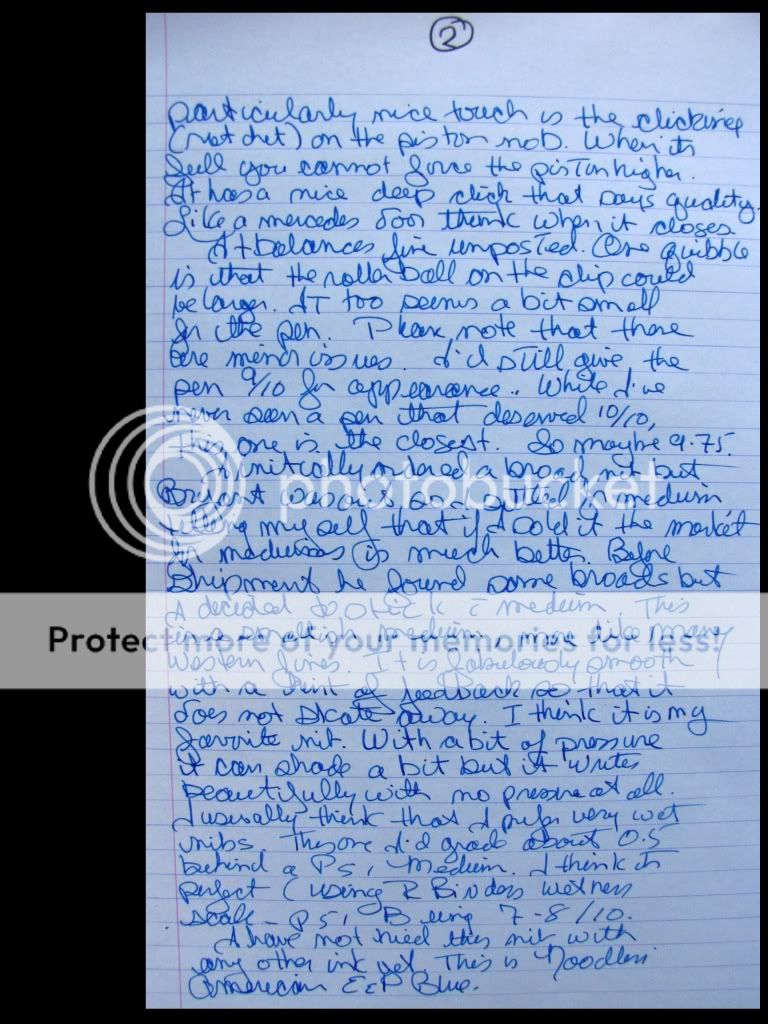 2
particularly nice touch is the clicking
(ratchet) on the piston nob. When its
full you cannot force the piston higher.
It has a nice deep click that says quality.
Like a mercedes door thunk when it closes.
It balances fine unposted. One quibble
is that the roller ball on the clip could
be larger. It too seems a bit small
for the pen. Please note that these
are minor issues. I'd still give the
pen 9/10 for appearance.. While I've
never seen a pen that deserved 10/10,
this one is the closest. So maybe 9.75.
I initically ordered a broad nib but
Bryant was out so I settled for medium
telling myself that if I sold it the market
for mediums is much better. Before
shipment he found some broads but
I decided to stick c medium. This
is a smallish medium, more like many
Western fines. It is fabulously smooth
with a hint of feedback so that it
does not skate away. I think it is my
favorite nib. With a bit of pressure
it can shade a bit but it writes
beautifully with no pressure at all.
I usually think that I prefer very wet
nibs. This one I'd grade about 0.5
behind a P51, Medium. I think its
perfect (using R Binders wetness
scale - P51, B being 7-8/10.
I have not tried this nib with
any other ink yet. This is Noodlers
American Eel Blue.
photobucket
Protect more of your memories for less!